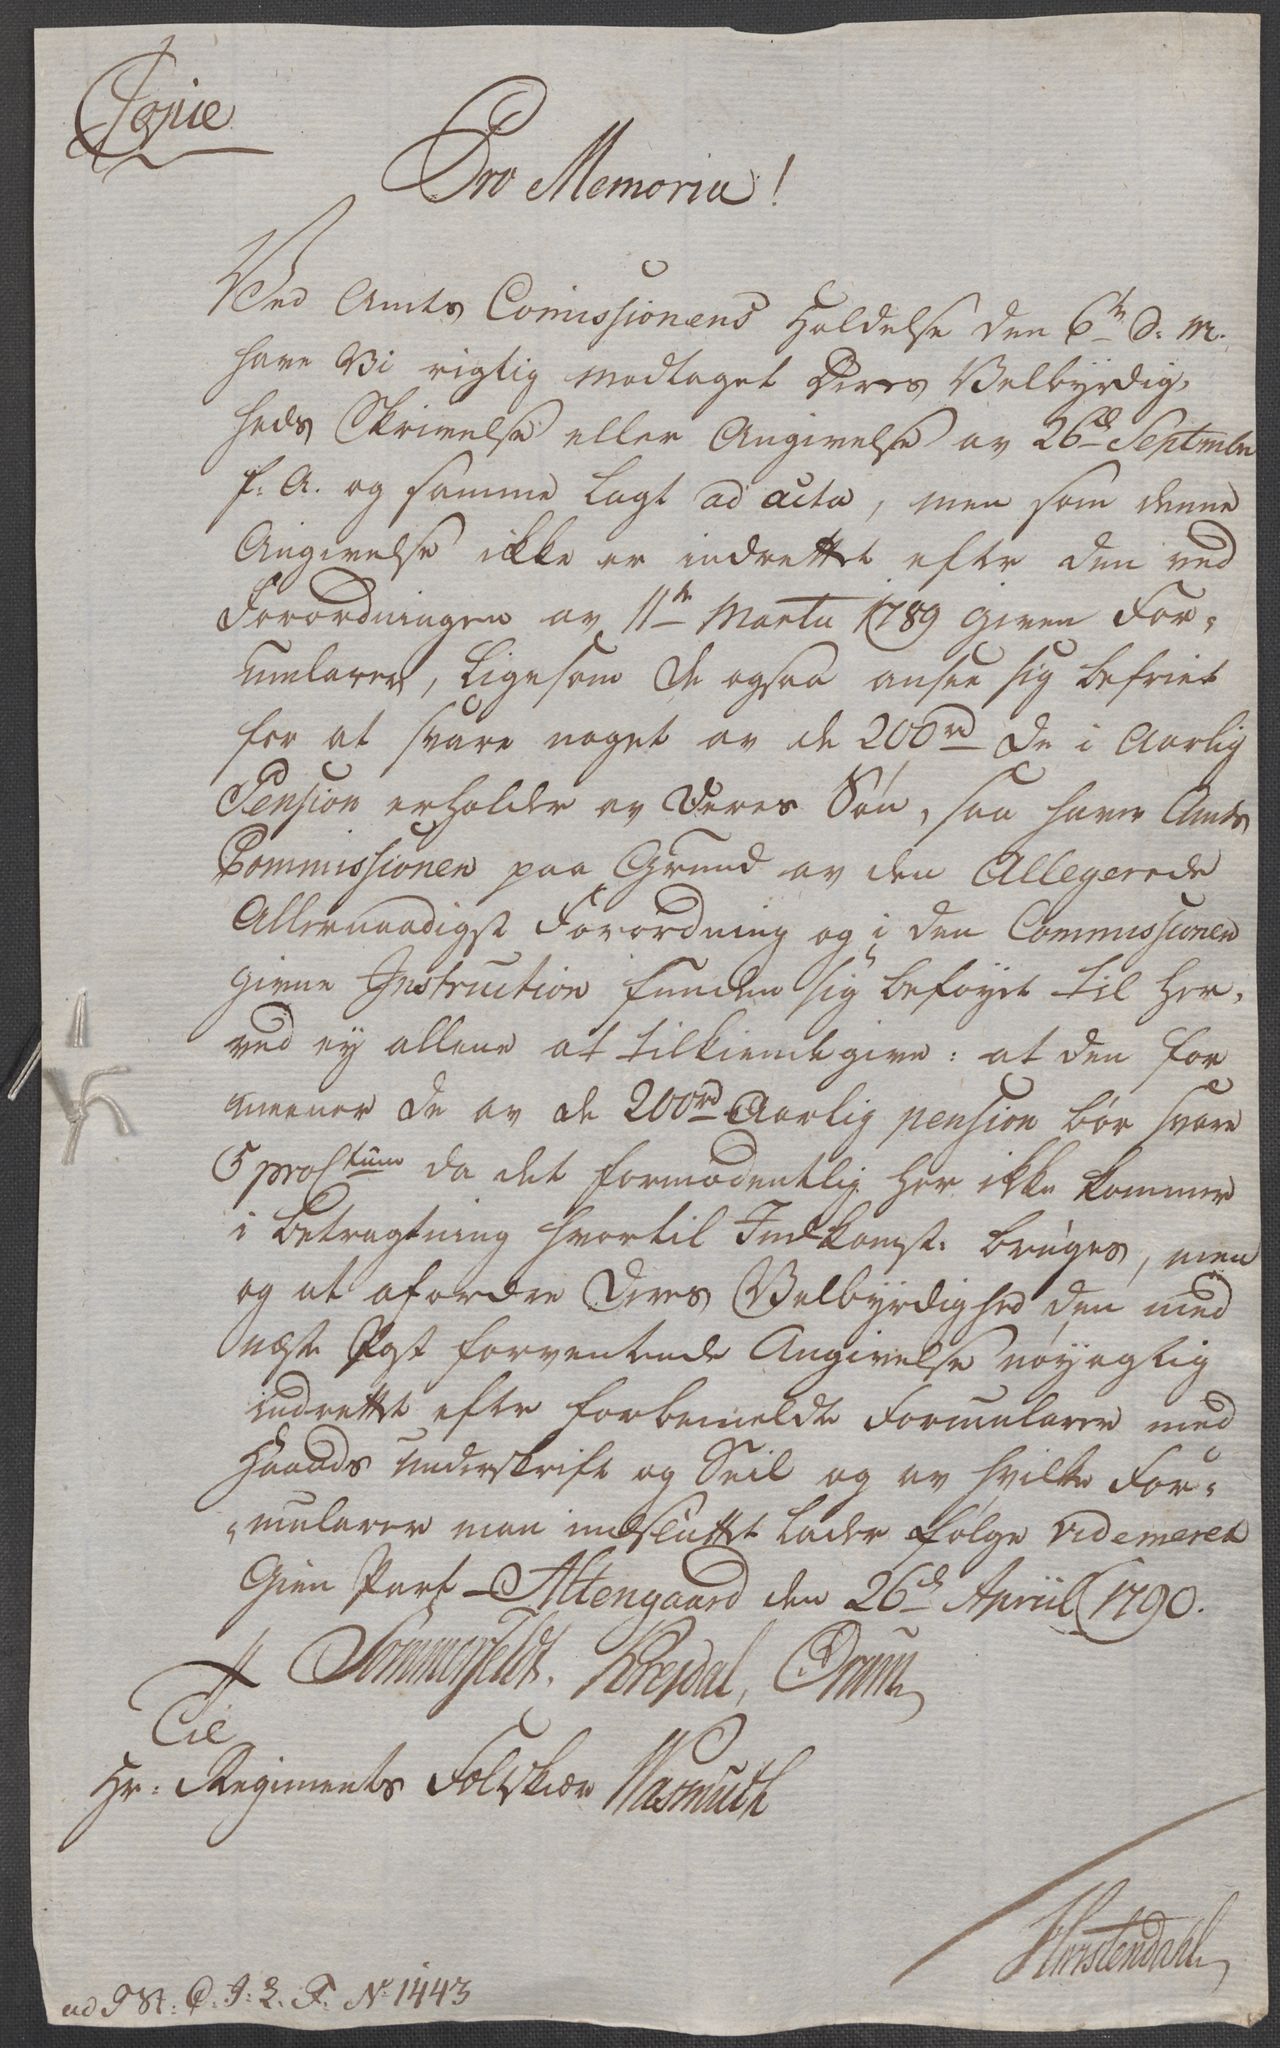 Copie
Pro Memoria!
Ved Amts Comissionens Holdelse den 6te d: M.
have Vi rigtig modtaget Deres Velbyrdig,
heds Skrivelse eller Angivelse av 26d Septembr
f: A. og samme lagt ad acta, men som denne
Angivelse ikke er indrettet efter den ved
Forordningen av 11te Martii 1789 given For,
mularer, Ligesom De ogsaa ansee sig befriet
for at svare noget av de 200rd De i Aarlig
Pension erholder av Deres Søn, saa haver Amts
Commissionen paa Grund av den Allegerede
Allernaadigst Forordning og i den Commissionen
givne Instruction funden sig beføyet til her,
ved ey allene at tilkiendegive: at den for
meener De av de 200rd Aarlig pension bør svare
5 proCtum da det formodentlig her ikke kommer
i betragtning hvortil Indkomst: bruges, men
og at afordre Deres Velbyrdighed den med
næste Post forventende Angivelse nøyagtig
indrettet efter forbemeldte Formularer med
Haands underskrift og Seil og av hvilke For,
,mularer man indsluttet lader følge videmeret
Gien Part - Altengaard den 26d Apriil 1790.
Sommerfeldt. Krejdal, Ørum
Til
Hr: Regiments Feltskiær Wasmuth
Christendahl
ad J St: C. J: L. F: No 1443